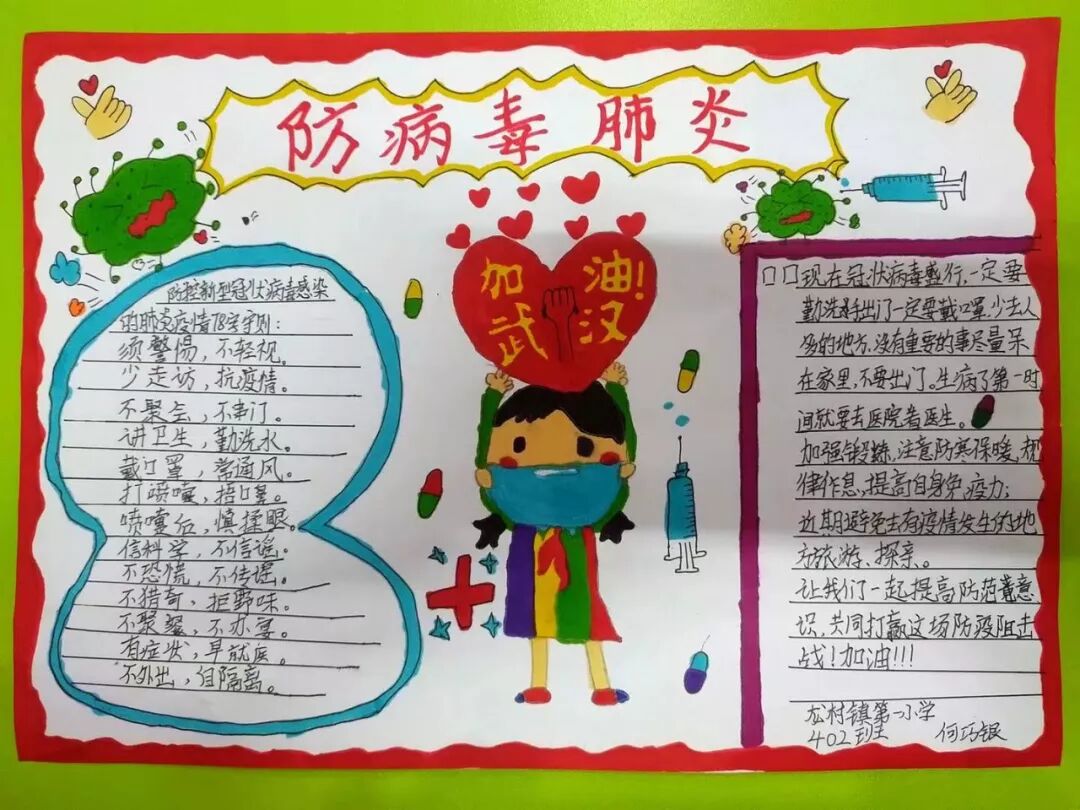 防病毒肺炎
加油!
武汉
防控新型冠状病毒感染
的肺炎疫情18字守则:
须警惕,不轻视。
少走访,抗疫情。
不聚会,不串门。
讲卫生,勤洗水。
戴口罩,常通风。
打喷嚏,捂口鼻。
喷嚏后,慎揉眼。
信科学,不信谣。
不恐慌,不传谣。
不猎奇,拒野味。
不聚餐,不办宴。
有症状,早就医。
不外出,自隔离。
口口现在冠状病毒盛行,一定要
勤洗手出门一定要戴口罩,少去人
多的地方,没有重要的事尽量呆
在家里,不要出门。生病了第一时
间就要去医院看医生。
加强锻炼,注意防寒保暖,规
律作息,提高自身免疫力;
近期避免去有疫情发生的地
方旅游、探亲。
让我们一起提高防范意
识,共同打赢这场防疫阻击
战!加油!!!
松村镇第一小学
402班 何巧银